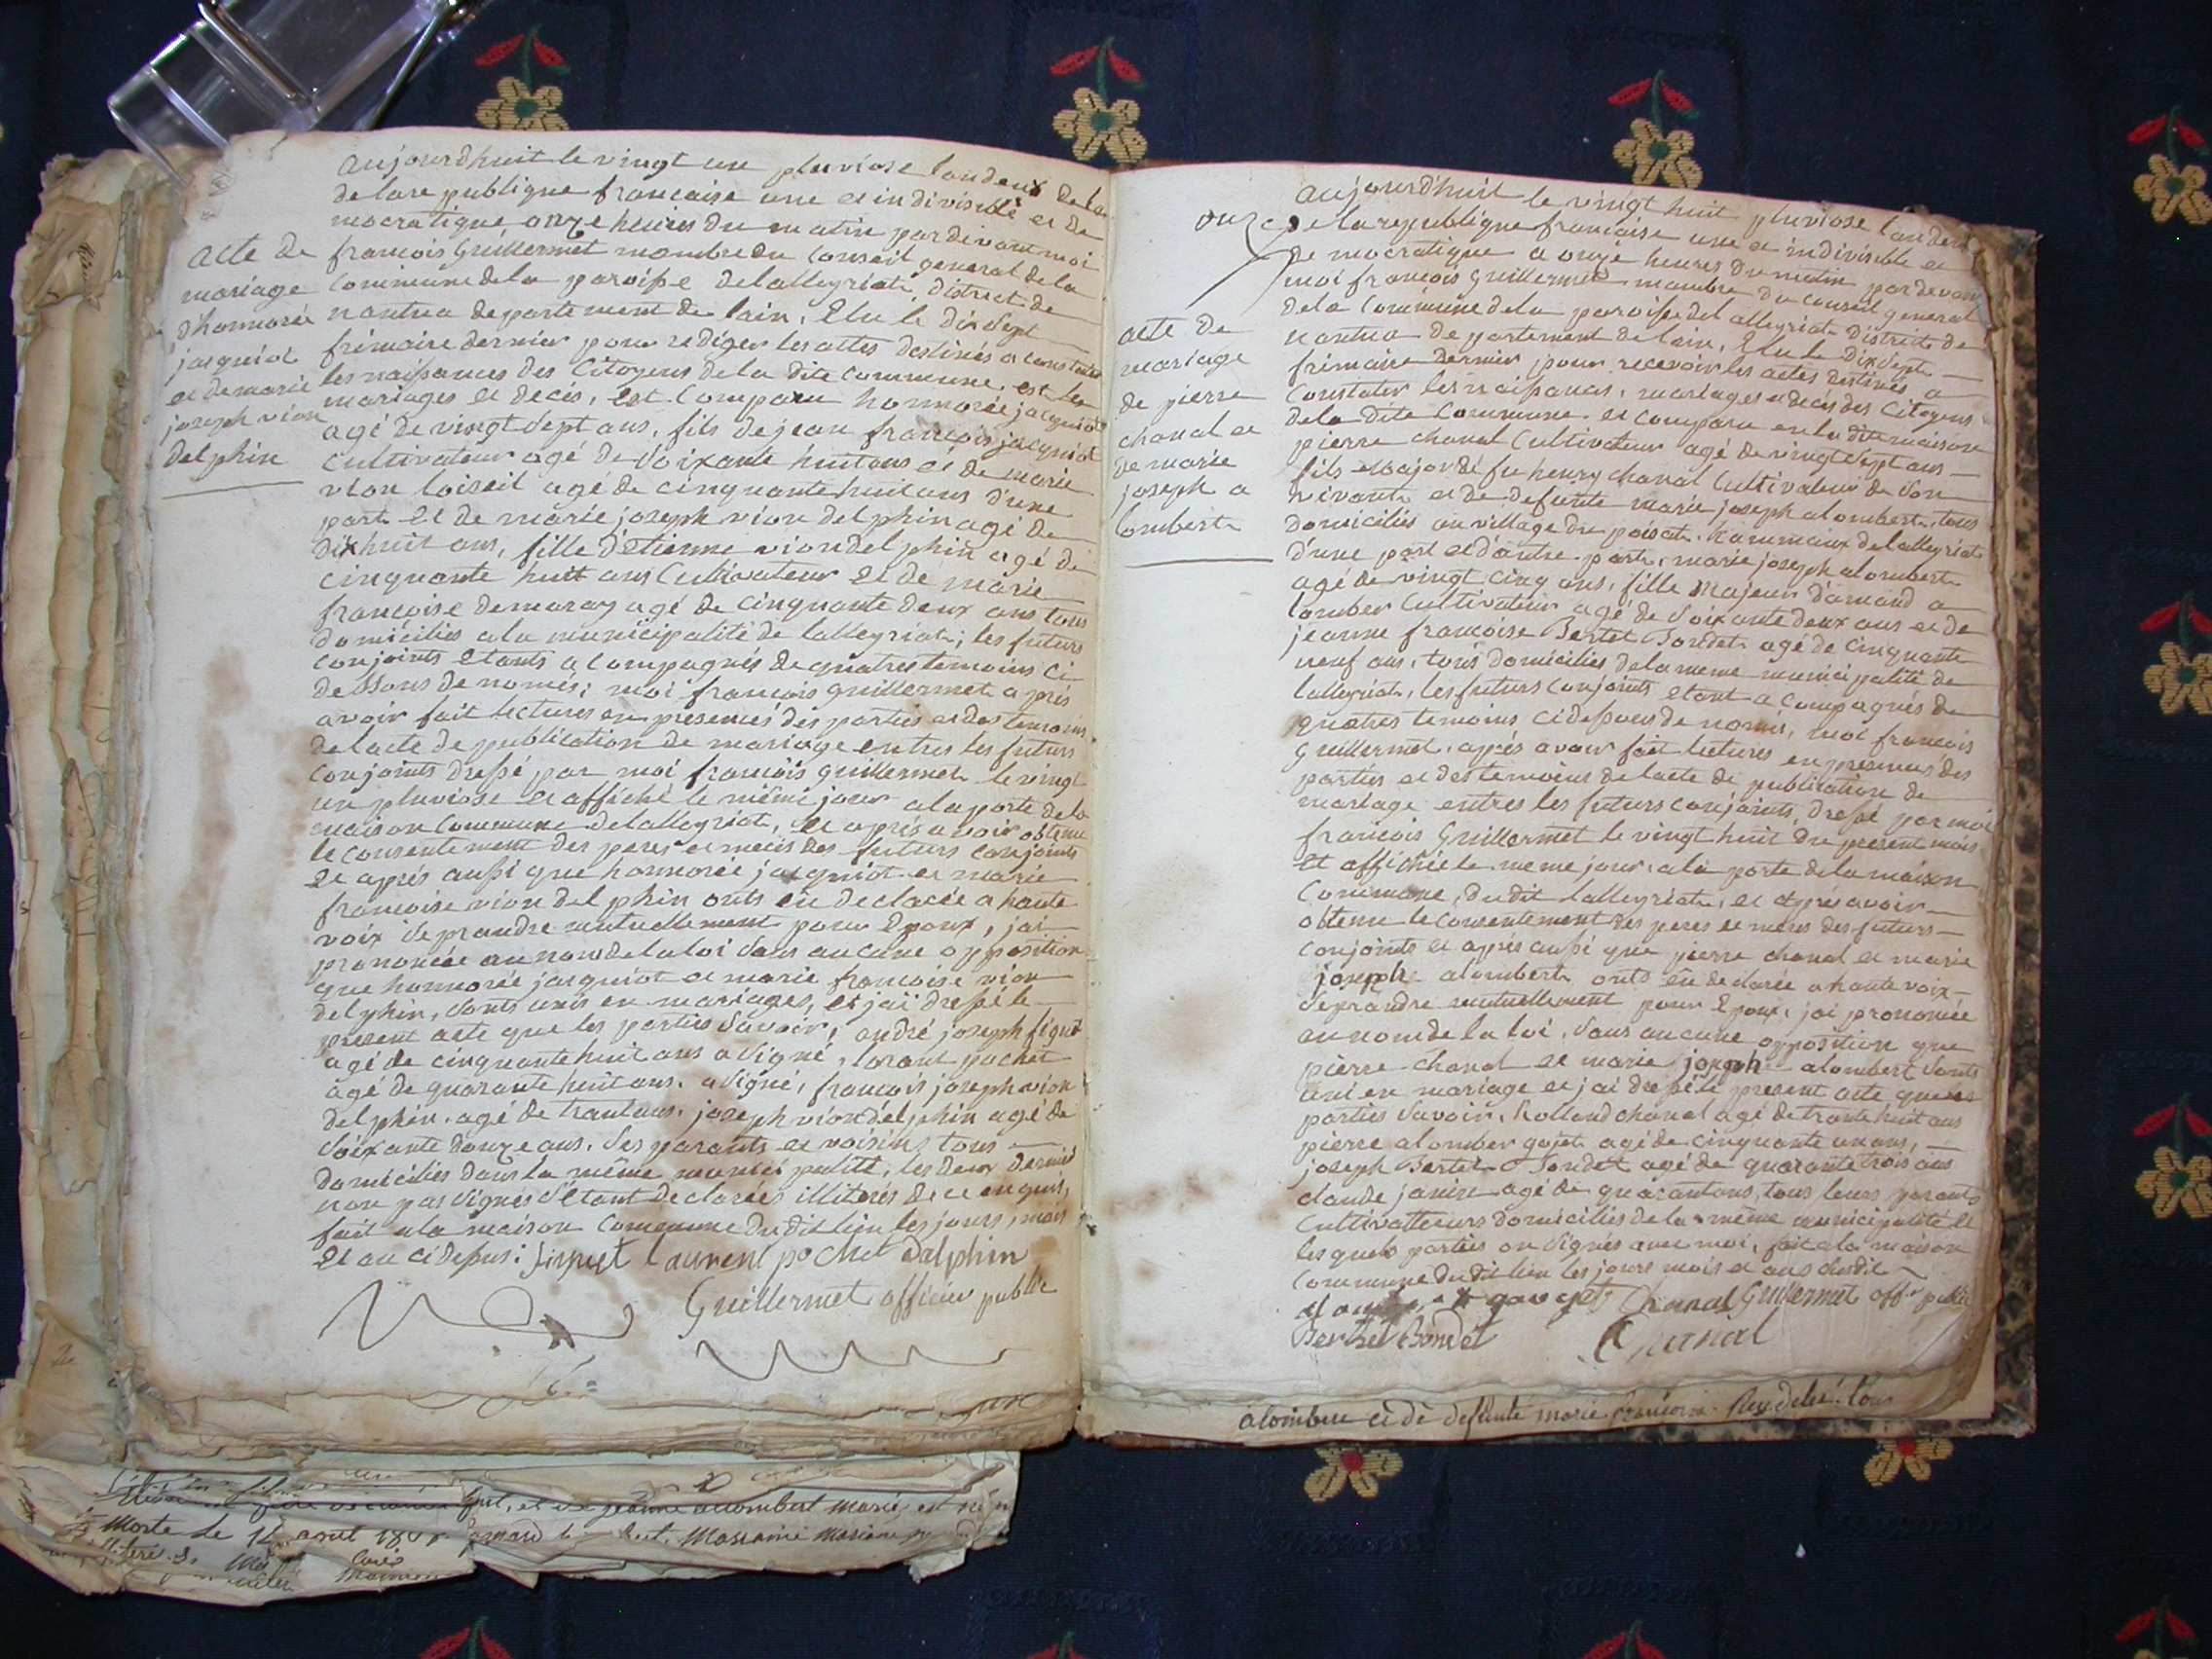 aujourdhuit le vingt une pluviose landeux de la
de lare publique francaise une et indivisible et de
mocratique onze heures du matin par devant moi
francois Guillermet membre du Conseil general de la
Commune de la paroisse de lalleyriat, district de
nantua departement de lain, Elu le dix Sept
frimaire dernier pour rediger les actes destinés a constater
les naissances des Citoyens de la dite Commune, est les
mariages et decés, est Comparu honnorée jacquiot
agé de vingt Sept ans, fils de jean francois jacquiot
Cultivateur agé de Soixante huit ans et de marie
vion loiseil agé de cinquante huit ans d'une
part et de marie joseph vion delphin agé de
dix huit ans, fille d'etienne vion delphin agé de
cinquante huit ans Cultivateur et de marie
francoise demaray agé de cinquante deux ans tous
domiciliés a la municipalité de lalleyriat; les futurs
conjoints etants acompagnés de quatres temoins ci
dessous denomés; moi francois guillermet aprés
avoir fait lectures en presences des parties et des temoins
de lacte de publication de mariage entres les futurs
conjoints dressé par moi francois guillermet le vingt
un pluviose et affiché le même jour a la porte de la
maison Commune de lalleyriat, et aprés avoir obtenu
le consentement des peres et meres des futurs conjoints
et aprés aussi que honnorée jacquiot et marie
francoise vion delphin onts eû declarée a haute
voix se prandre mutuellement pour Epoux, jai
prononcée au nom de la loi sans aucune opposition
que honnorée jacquiot et marie francoise vion
delphin, sonts unis en mariages, et jai dressé le
present acte que les parties Savoir, andré joseph
agé de cinquante huit ans a Signé, lorant pochet
agé de quarante huit ans, a Signé, francois joseph vion
delphin agé de trantans, joseph vion delphin agé de
Soixante douze ans, Ses parants et voisins tous
domiciliés dans la même municipalité, les deux derniés
non pas Signés S'etant declarées illiterés de ce enquis,
fait a la maison Commune du dit lieu les jours, mois
Et an cidessus: laurent pochet dalphin
Guillermet officier public
acte de
mariage
d'honnorée
jacquiot
et de marie
joseph vion
delphin
aujourd'huit le vingt huit pluviose landeux
onze de la republique francaise une et indivisible et
de mocratique a onze heures du matin par devant
moi francois Guillermet membre du Conseil general
de la Commune de la paroisse de lalleyriat district de
nantua departement de lain, Elu le dix Sept
frimaire dernier pour recevoir les actes destinés a
Constater les naissances, mariages et decés des Citoyens
de la dite Commune, et comparu en la dite maison
pierre chanal Cultivateur agé de vingt Sept ans
fils major de fu henry chanal Cultivateur de Son
vivant et de defunte marie joseph alombert, tous
domiciliés au village du poisat, hammaux de lalleyriat
d'une part et d'autre part, marie joseph alombert
agé de vingt cinq ans, fille Majeur d'amand a
lomber Cultivateur agé de Soixante deux ans et de
jeanne francoise Bertet Bondet agé de Cinquante
neuf ans, tous domiciliés de la meme municipalité de
lalleyriat, les futurs Conjoints etant acompagnés de
quatres temoins cidessous denomés, moi francois
Guillermet, aprés avoir fait lectures en presences des
parties et des temoins de lacte de publication de
mariage entres les futurs conjoints, dressé par moi
francois Guillermet le vingt huit du present mois
et affichée le meme jour a la porte de la maison
Commune, du dit lalleyriat, et aprés avoir
obtenu le consentement des peres et meres des futurs
conjoints et aprés aussi que pierre chanal et marie
joseph alombert onts eû declarée a haute voix
se prandre mutuellement pour Epoux, jai prononcée
au nom de la loi, Sans aucune opposition que
pierre chanal et marie joseph alombert Sonts
uni en mariage et jai dressé le present acte que les
parties Savoir, Rolland chanal agé de trante huit ans
pierre alomber gojet agé de cinquante un ans,
joseph Bertet Bondet agé de quarante trois ans
claude janier agé de quarantans, tous leurs parants
Cultivatteurs domiciliés de la même municipalité et
les quels parties on Signés avec moi, fait a la maison
Commune du dit lieu les jours mois et ans Susdit
Chanal Guillermet off.r public
Berthet Bondet Chanal
acte de
mariage
de pierre
chanal et
de marie
joseph a
lombert
alomber et de defunte marie
et de jeanne allombert Mariés
Morte le